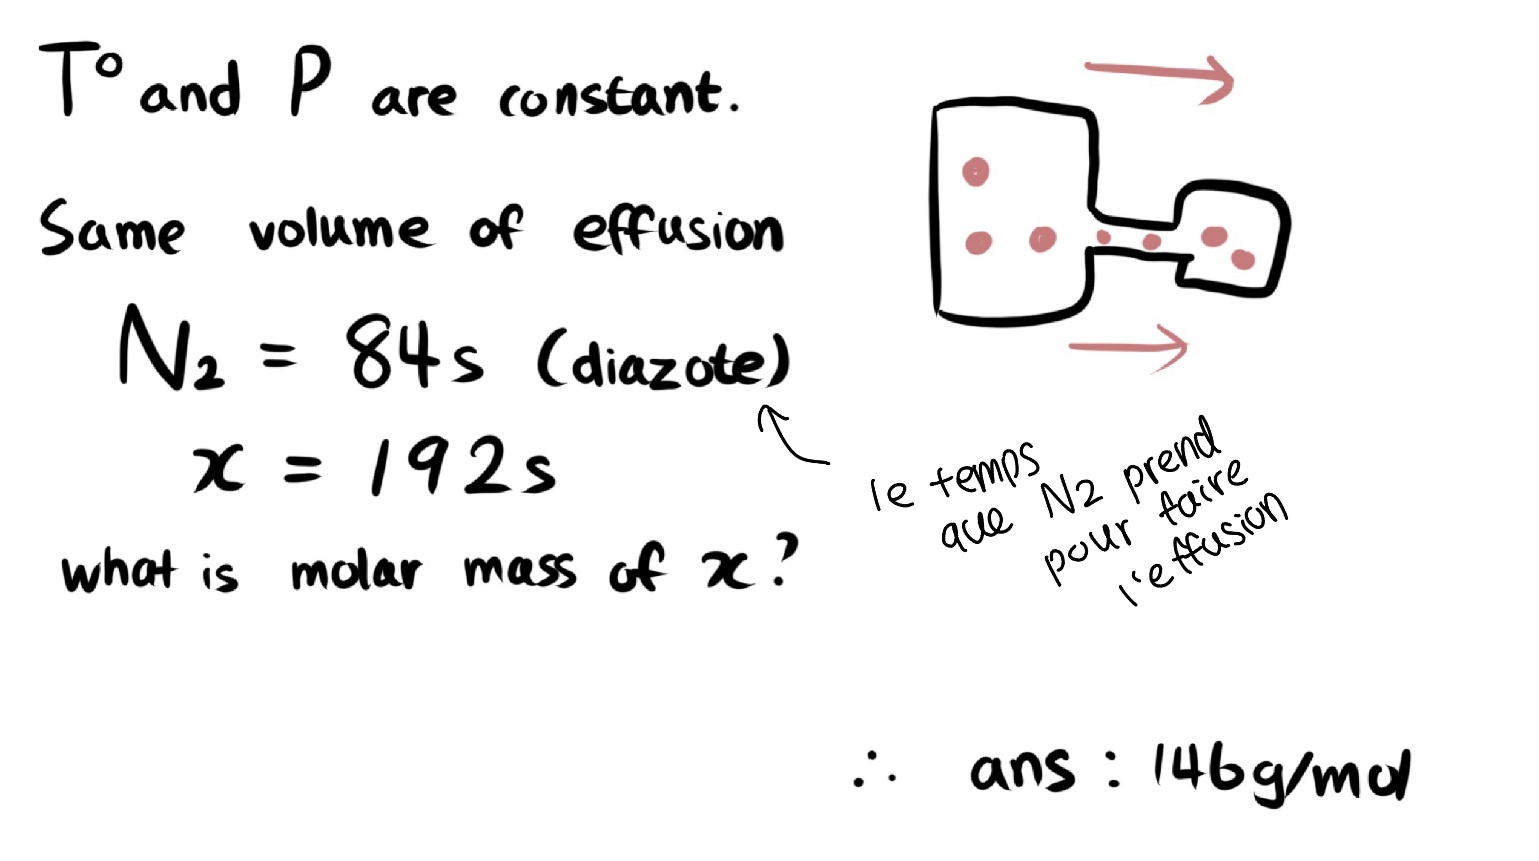 T° and P are constant.
Same volume of effusion
N₂ = 84s (diazote)
x = 192s
what is molar mass of x?
le temps
que N2 prend
pour faire
l'effusion
∴ ans : 146g/mol